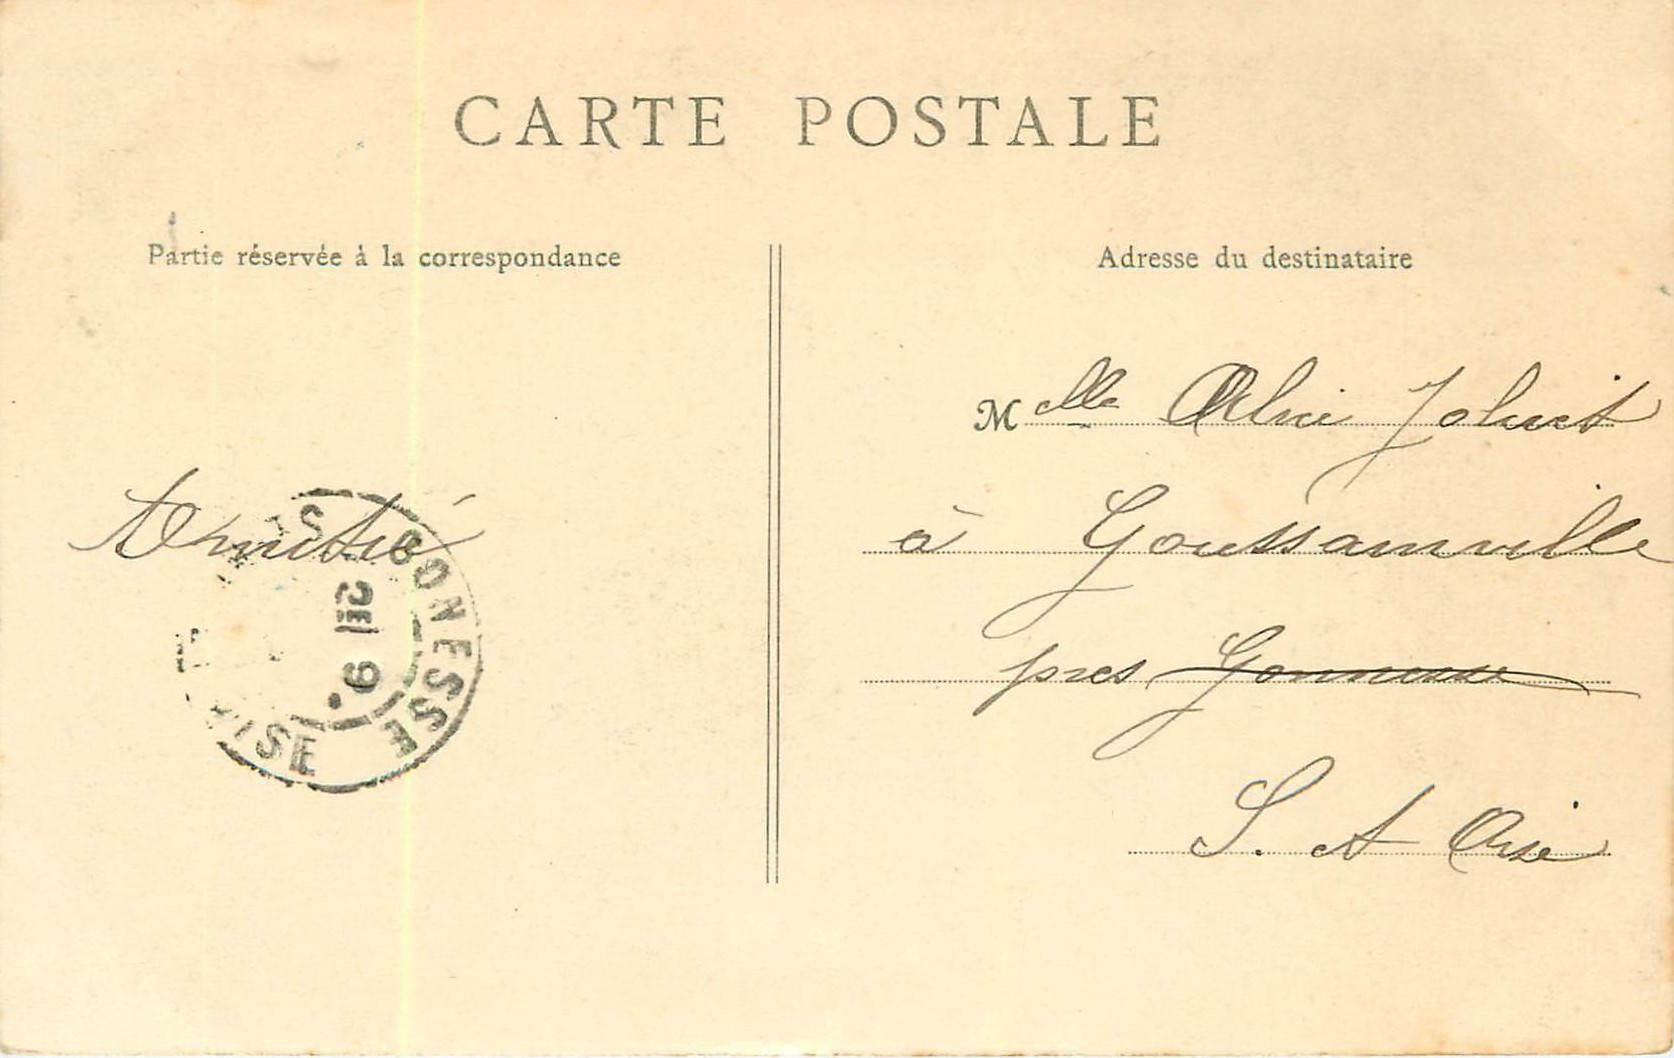 CARTE POSTALE
Partie réservée à la correspondance
Amitié
GONESSE
OISE
Adresse du destinataire
Melle Aline Jolivet
à Goussainville
près Gonnesse
S. et Oise